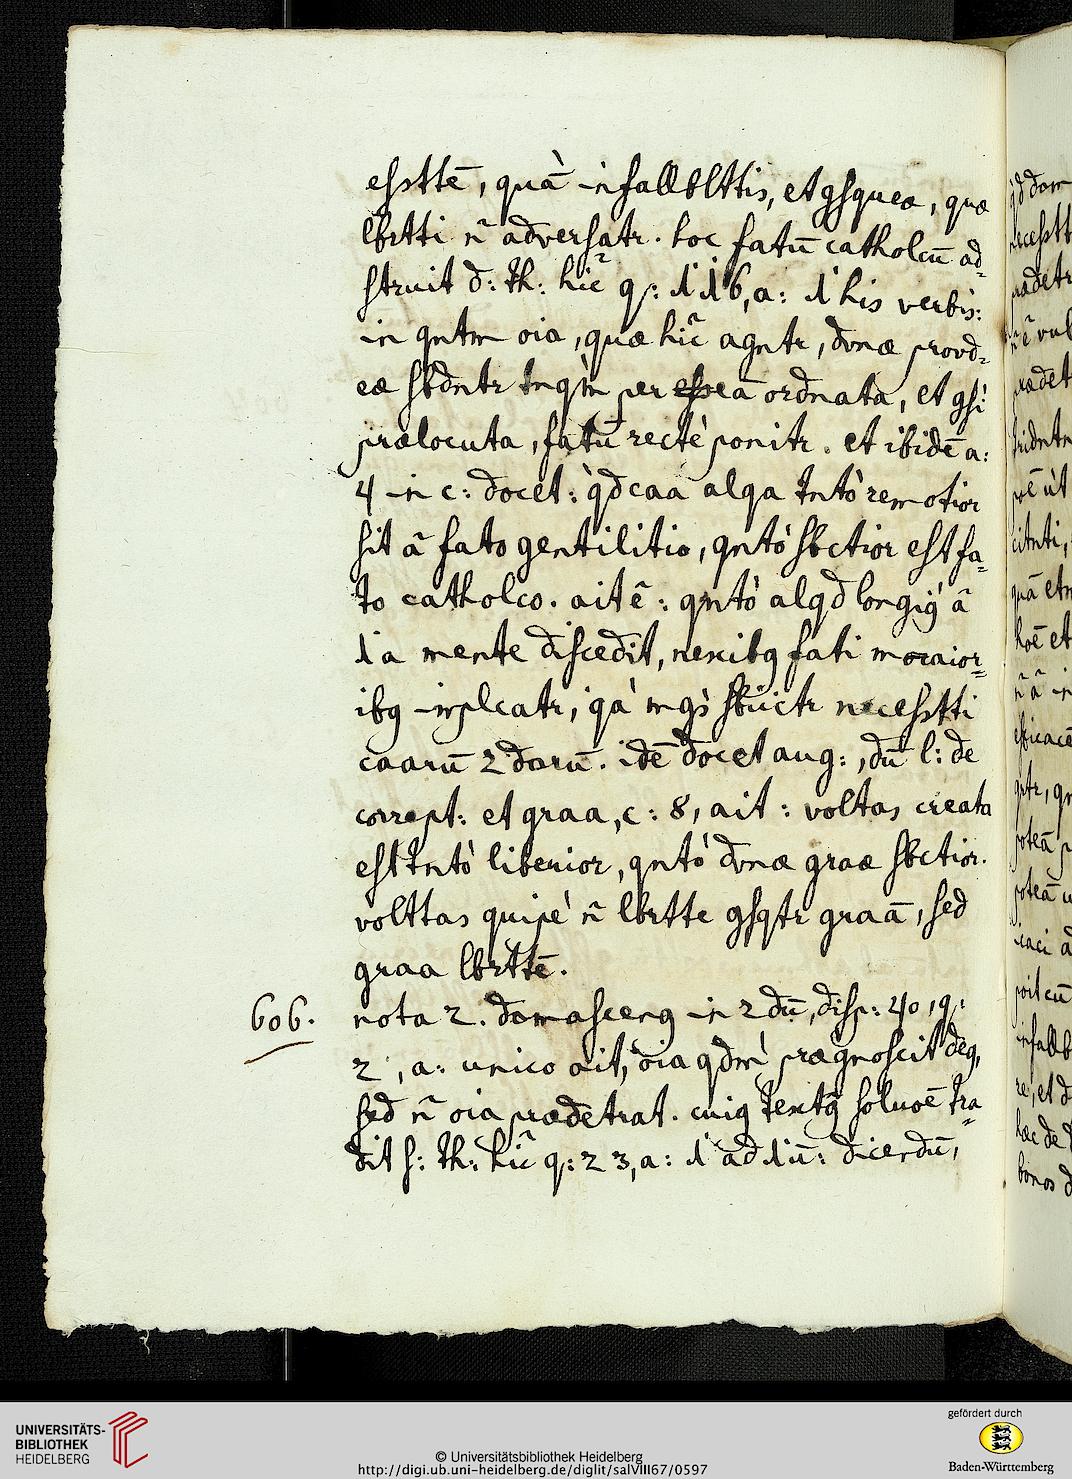 esstte̅, quà infallblttis, et gsquea, quæ
lbrtti n̅ adversatr. hoc fatū catholcū ad=
struit d: th: hic̅ q: 116, a: 1 his verbis:
in qntm oia, quæ hic̅ agntr, dvnæ provd=
eæ sbdntr tnqm̀ per ea ordnata, et qsi
prælocuta, fatū rectè ponitr. et ibide̅ a:
4 in c: docet: q̀d caa alqa tntò remotior
sit a̅ fato gentilitio, qntò sbctior est fa=
to catholco. ait e̅: qntò alqd longig a̅
1a mente discedit, nexibg fati maior=
ibg implcatr, iqà mgs̀ sbiictr necesstti
caarū 2darū. ide̅ docet aug:, dū l: de
corrept: et graa, c: 8, ait: voltas creata
est tntò liberior, qntò dvnæ graæ sbctior.
volttas quipè n̅ lbrtte gsqtr graā, sed
graa lbrtte̅.
606. nota 2. damasceng in 2dū, disp: 40, q:
2, a: unico ait, oia qdm̀ prægnoscit deg,
sed n̅ oia prædetrat. cuig textg̅ soluoe̅ tra=
dit s: th: hic̅ q: 23, a: 1 ad 1ū: dicendū,
UNIVERSITÄTS-
BIBLIOTHEK
HEIDELBERG
© Universitätsbibliothek Heidelberg
http://digi.ub.uni-heidelberg.de/diglit/salVIII67/0597
gefördert durch
Baden-Württemberg